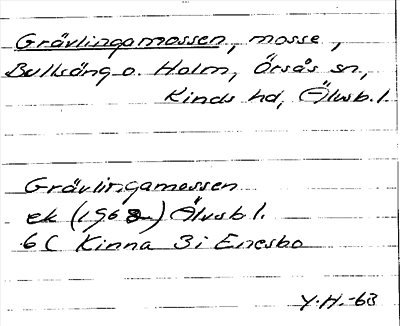 Grävlingamossen, mosse,
Bullsäng o. Holm, Örsås sn,
Kinds hd, Älvsb. l.
Grävlingamossen
ek (1968) Älvsb l.
6C Kinna 3i Enesbo
Y.H.-63